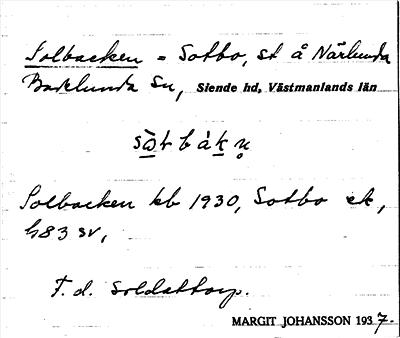 Solbacken = Sotbo, st å Närlunda
Badelunda Sn, Siende hd, Västmanlands län
Solbacken kb 1930, Sotbo ek,
h83 sv,
F.d. soldattorp.
MARGIT JOHANSSON 1937.